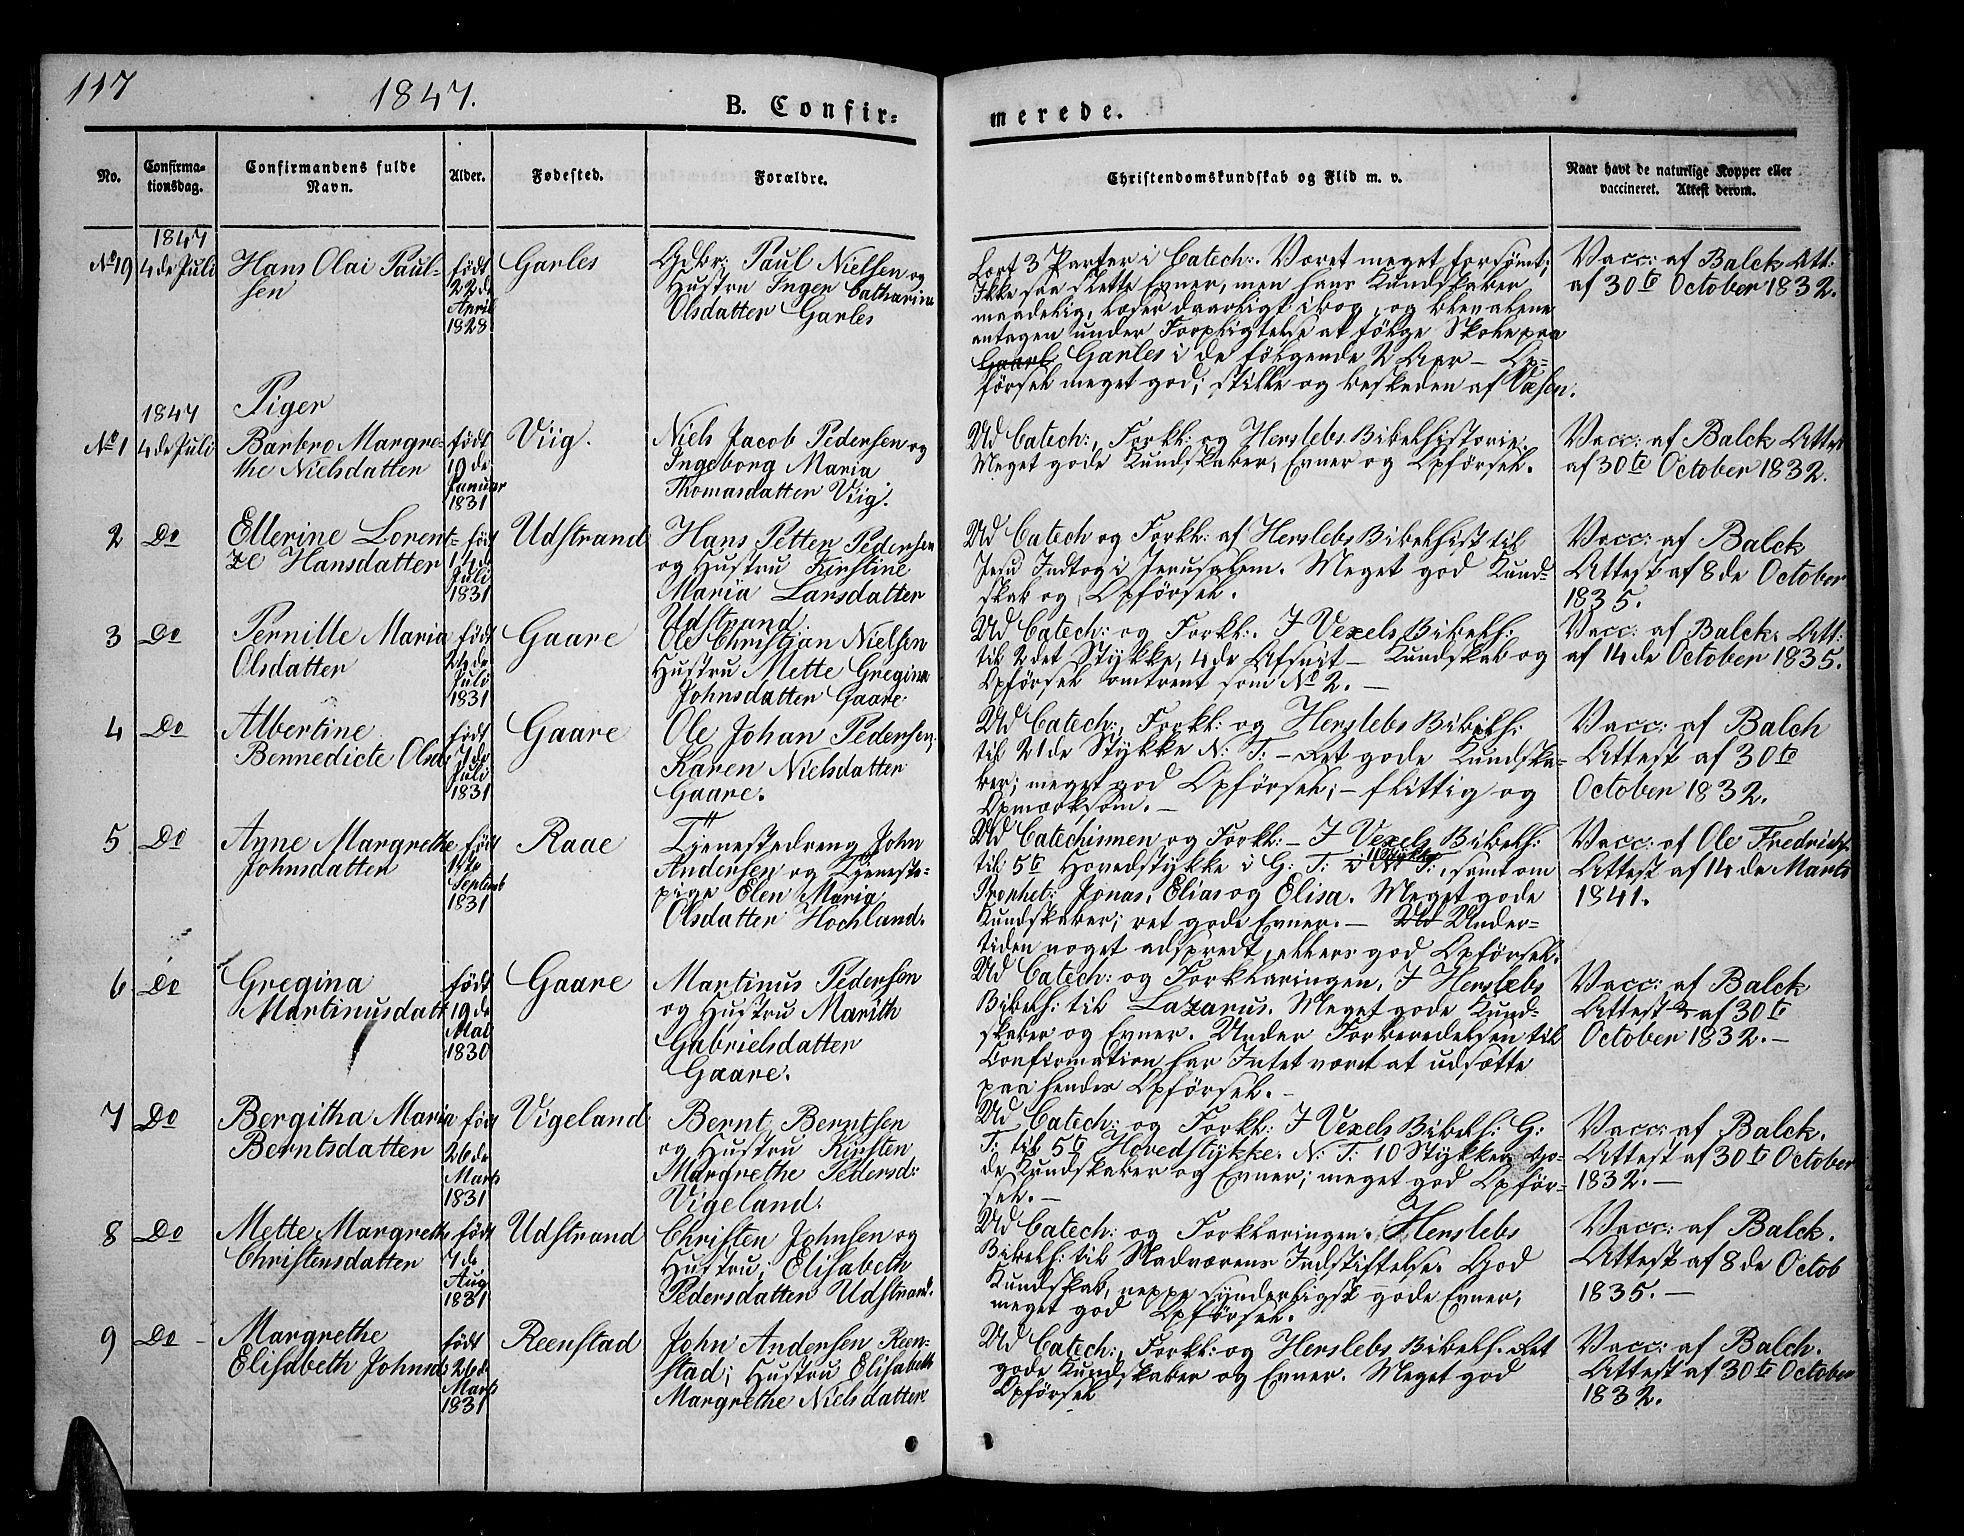 117
1847.
B. Confir=
merede.
No.
Confirma-
tionsdag.
Confirmandens fulde
Navn.
Alder.
Fødested.
Forældre.
Christendomskundskab og Flid m. v.
Naar havt de naturlige Kopper eller
vaccineret. Attest derom.
1847
No 19
4de Juli
Hans Olai Paul-
sen
født
22de
April
1828
Garles
Gdbr: Paul Nielsen og
Hustru Inger Catharina
Olsdatter Garles
Lært 3 Parter i Catech:. Været meget forsømt;
Ikke saa slette Evner, men hans Kundskaber
maadelig, læser daarligt i bog, og blev alene
antagen under Forpligtelse at følge Skole paa
Gaarl Garles i de følgende 2 Aar – Op-
førsel meget god; stille og beskeden af Væsen.
Vacc: af Balck Att:
af 30te October 1832.
Piger
1847
No 1
4de Juli
Barbro Margre-
the Nielsdatter
født
19de
Januar
1831
Viig.
Niels Jacob Pedersen og
Ingeborg Maria
Thomasdatter Viig.
Ud Catech:, Forkl: og Herslebs Bibelhistorie:
Meget gode Kundskaber, Evner og Opførsel.
Vacc: af Balck Attest
af 30te October 1832.
2
Do
Ellerine Lorent-
ze Hansdatter
født
14de
Juli
1831
Udstrand
Hans Petter Pedersen
og Hustru Kirstine
Maria Larsdatter
Udstrand.
Ud Catech og Forkl: af Herslebs Bibelhist til
Jesu Indtog i Jerusalem. Meget god Kund-
skab og Opførsel.
Vacc: af Balck
Attest af 8de October
1835.
3
Do
Pernille Maria
Olsdatter
født
24de
Juli
1831
Gaare
Ole Christian Nielsen
Hustru Mette Gregina
Johnsdatter Gaare.
Ud Catech: og Forkl:. I Vexels Bibelh:
til 2det Stykke, 4de Afsnit – Kundskab og
Opførsel omtrent som No 2. –
Vacc: af Balck. Att:
af 14de October 1835.
4
Do
Albertine
Bennedicte Olsd
født
7de
Juli
1831
Gaare
Ole Johan Pedersen,
Karen Nielsdatter
Gaare.
Ud Catech:, Forkl: og Herslebs Bibelh:
til 21de Stykke N: T: – Ret gode Kundska-
ber; meget god Opførsel; – flittig og
Opmærksom. –
Vacc: af Balch
Attest af 30te
October 1832.
5
Do
Anne Margrethe
Johnsdatter
født
Septemb
1831
Raae
Tjenestedreng John
Andersen og Tjeneste-
pige Elen Maria
Olsdatter Hochland.
Ud Catechismen og Forkl: – I Vexels Bibelh:
til 5te Hovedstykke i G: T: samt om
Prophet: Jonas, Elias og Elisa. Meget gode
Kundskaber; ret gode Evner. – Ud Under-
tiden noget adspredt, ellers god Opførsel.
Vacc: af Ole Fredrichs.
Attest af 14de Marts
1841.
6
Do
Gregina
Martinusdatt
født
19de
Mai
1830
Gaare
Martinus Pedersen
og Hustru Marith
Gabrielsdatter
Gaare.
Ud Catech: og Forklaringen, I Herslebs
Bibelh: til Lazarus. Meget gode Kund-
skaber og Evner. Under Forberedelsen til
Confirmation har Intet været at udsætte
paa hendes Opførsel. –
Vacc: af Balck
Attest af 30te
October 1832. –
7
Do
Bergitha Maria
Berntsdatter
født
26de
Marts
1831
Vigeland
Bernt Berntsen
og Hustru Kirsten
Margrethe Pedersd:
Vigeland.
Ud Catech: og Forkl: I Vexels Bibelh: G:
T: til 5te Hovedstykke. N: T: 10 Stykker Go-
de Kundskaber og Evner; meget god Opfør-
sel. –
Vacc: af Balck.
Attest af 30te October
1832. –
8
Do
Mette Margrethe
Christensdatter
født
7de
Aug
1831
Udstrand
Christen Johnsen og
Hustru; Elisabeth
Pedersdatter Udstrand.
Ud Catech: og Forklaringen. Herslebs
Bibelh: til Nadverens Indstiftelse. God
Kundskab, neppe synderligst gode Evner;
meget god Opførsel.
Vacc: af Balck.
Attest af 8de Octob
1835. –
9
Do –
Margrethe
Elisabeth Johnsd
født
26de
Marts
1831
Reenstad
John Andersen Reen-
stad; Hustru Elisabeth
Margrethe Nielsdatter.
Ud Catech:, Forkl: og Herslebs Bibelh. Ret
gode Kundskaber og Evner. Meget god
Opførsel
Vacc: af Balch.
Attest af 30te October
1832.